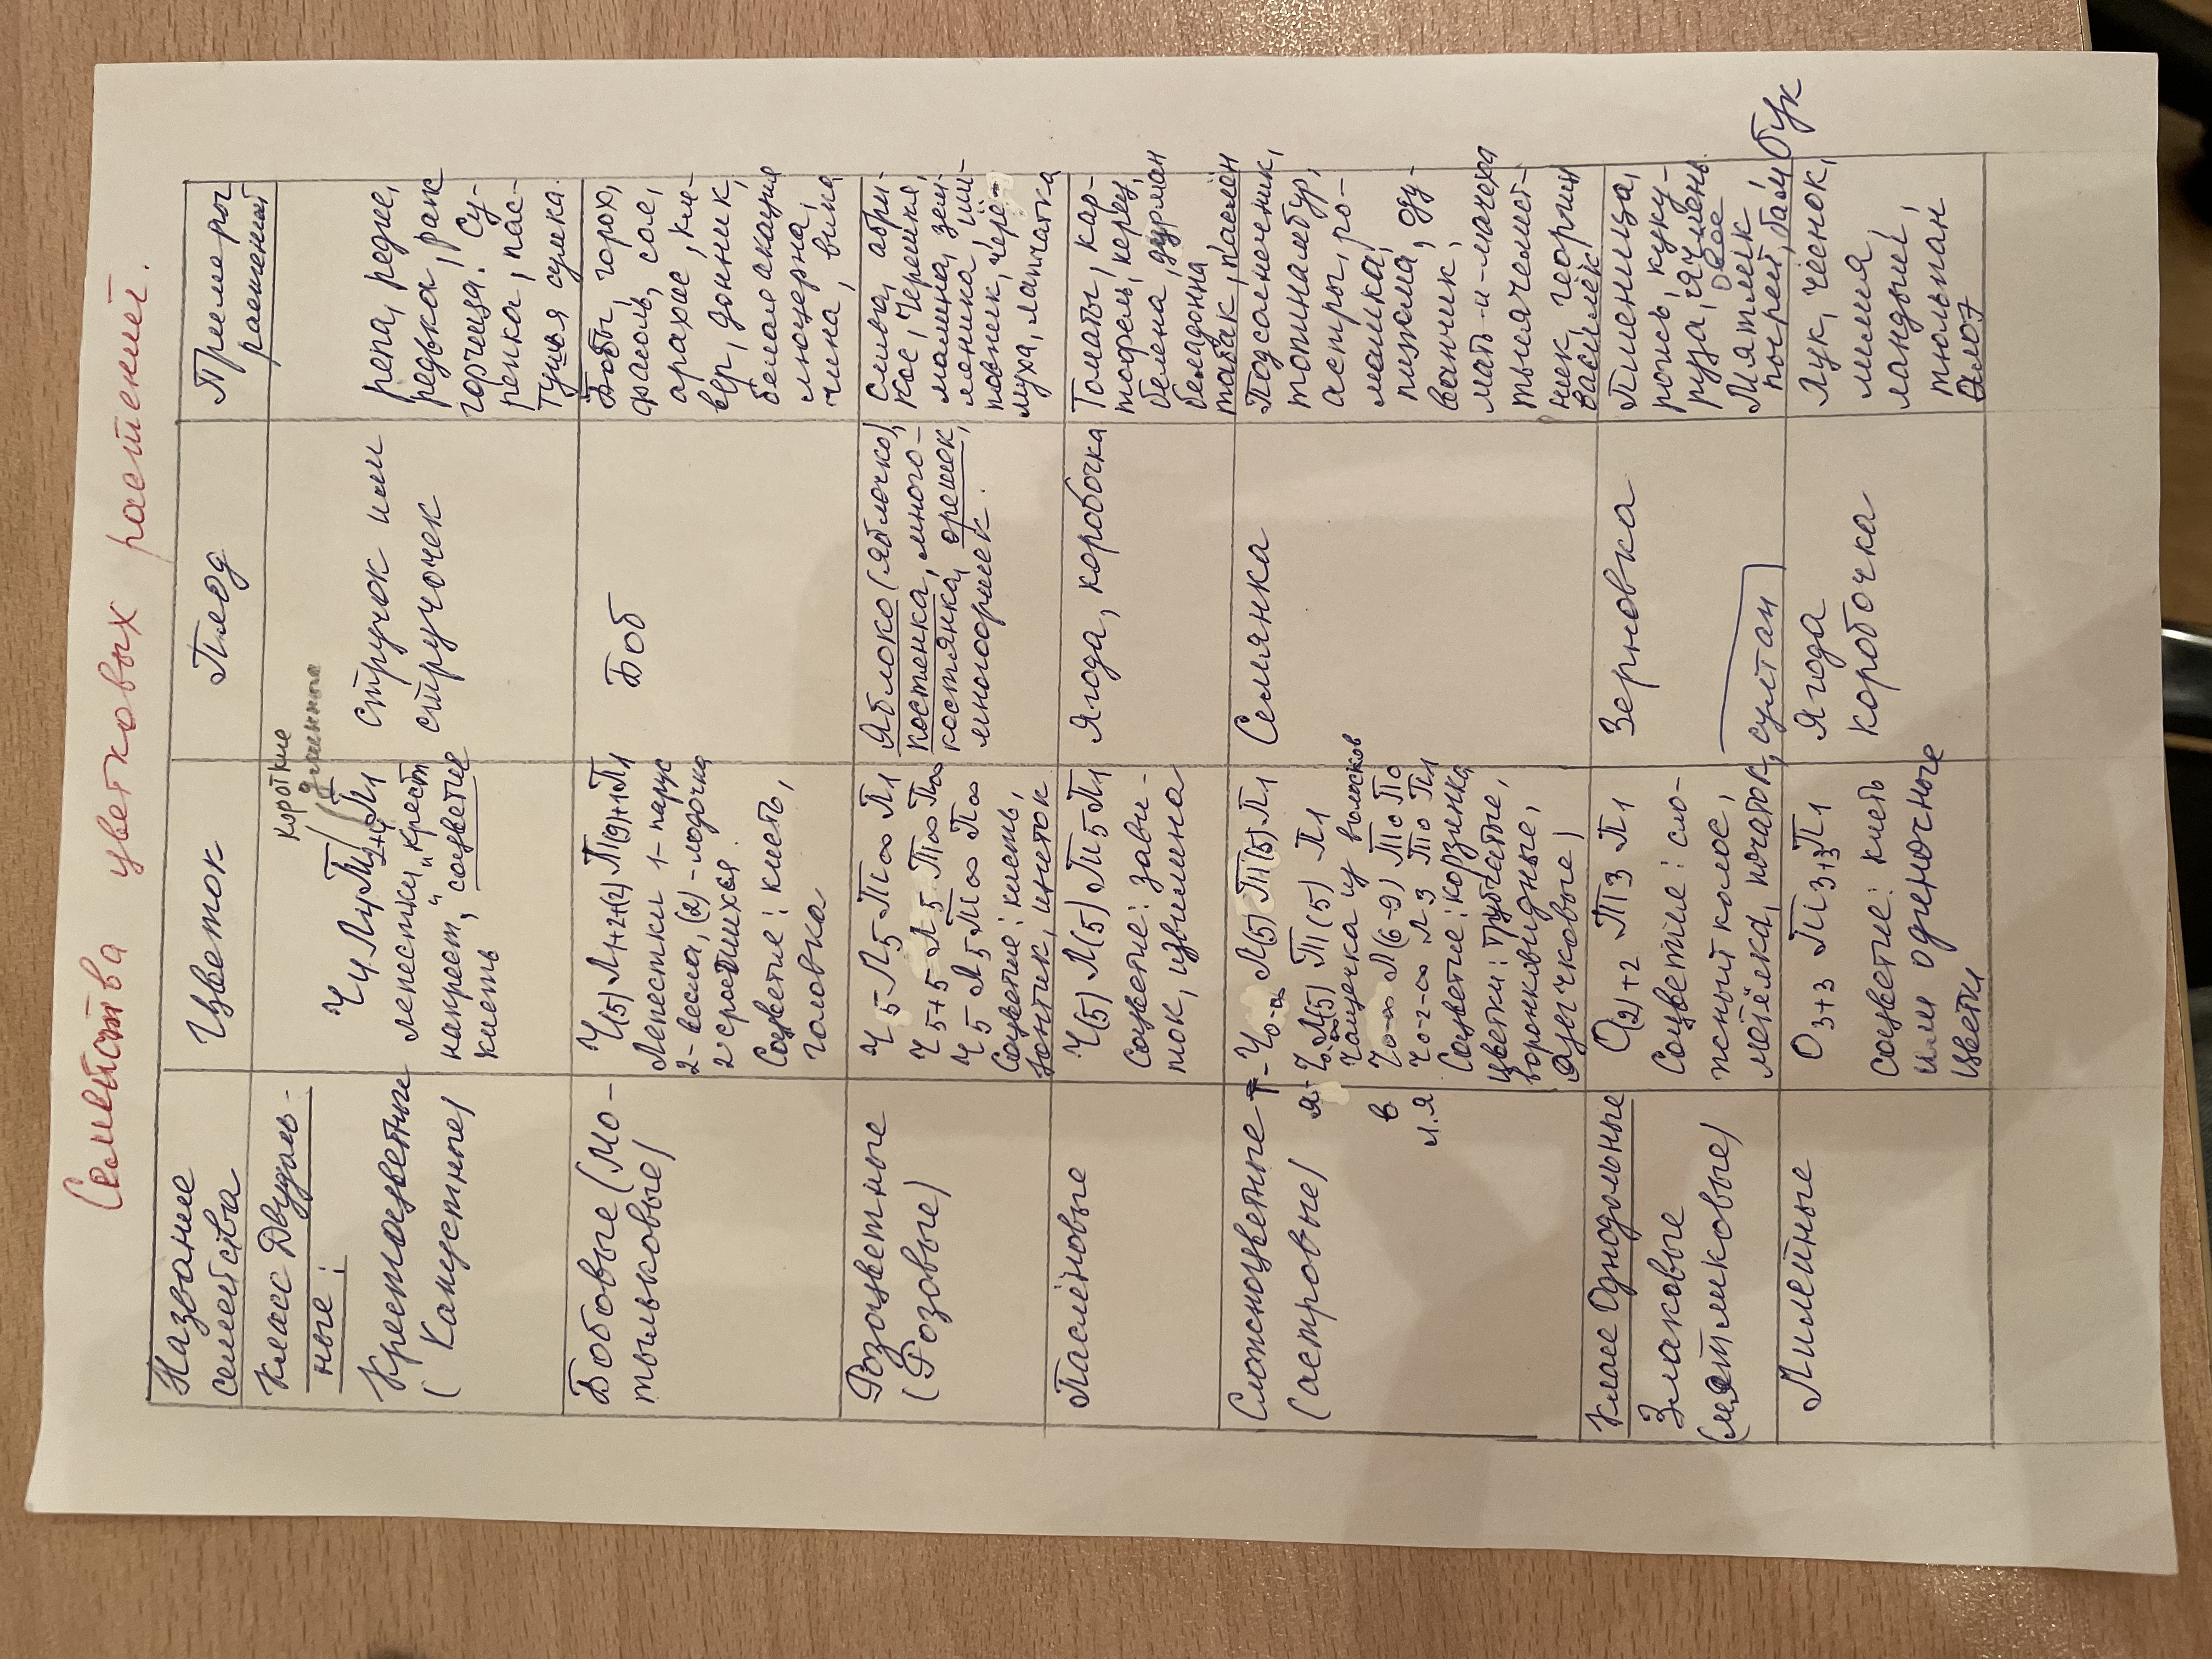 Семейства цветковых растений.
Название
семейства
Цветок
Плод
Примеры
растений
Класс Двудоль-
ные:
Крестоцветные
(Капустные)
короткие
длинные
Ч4 Л4 Т2+4 П1
лепестки "крест
накрест", соцветие
кисть
Стручок или
стручочек
репа, редис,
редька, рапс
горчица. Су-
репка, пас-
тушья сумка.
Бобовые (Мо-
тыльковые)
Ч(5) Л1+2+(2) Т(9)+1 П1
Лепестки 1-парус
2-весла, (2)-лодочка
2 сросшихся.
Соцветие: кисть,
головка
Боб
Бобы, горох,
фасоль, соя,
арахис, кле-
вер, донник,
белая акация
люцерна,
чина, вика
Розоцветные
(Розовые)
Ч5 Л5 Т∞ П1
Ч5+5 Л5 Т∞ П∞
Ч5 Л5 Т∞ П∞
Соцветие: кисть,
зонтик, щиток
Яблоко (яблочко),
костянка, много-
костянка, орешек,
многоорешек.
Слива, абри-
кос, черешня,
малина, зем-
ляника, ши-
повник, черё-
муха, лапчатка
Паслёновые
Ч(5) Л(5) Т5 П1
Соцветие: зави-
ток, извилина
Ягода, коробочка
Томаты, кар-
тофель, перец,
белена, дурман
белладонна
табак, паслён
Сложноцветные
(астровые)
Т- Ч0-∞ Л(5) Т(5) П1
Я- Ч0-∞ Л(5) Т(5) П1
Чашечка из волосков
В Ч0-∞ Л(6-9) Т0 П0
л.я Ч0-2-∞ Л3 Т0 П1
Соцветие: корзинка
Цветки: трубчатые,
воронковидные,
язычковые)
Семянка
Подсолнечник,
топинамбур,
астры, ро-
машка,
пижма, оду-
ванчик,
мать-и-мачеха
тысячелист-
ник, георгин
василёк
Класс Однодольные
Злаковые
(мятликовые)
О(2)+2 Т3 П1
Соцветие: сло-
жный колос,
метёлка, початок, султан
Зерновка
Пшеница,
рожь, куку-
руза, ячмень.
Овёс
Мятлик,
пырей, бамбук
Лилейные
О3+3 Т3+3 П1
соцветие: кисть
или одиночные
цветки
Ягода
коробочка
Лук, чеснок,
лилия,
ландыш,
тюльпан
Алоэ